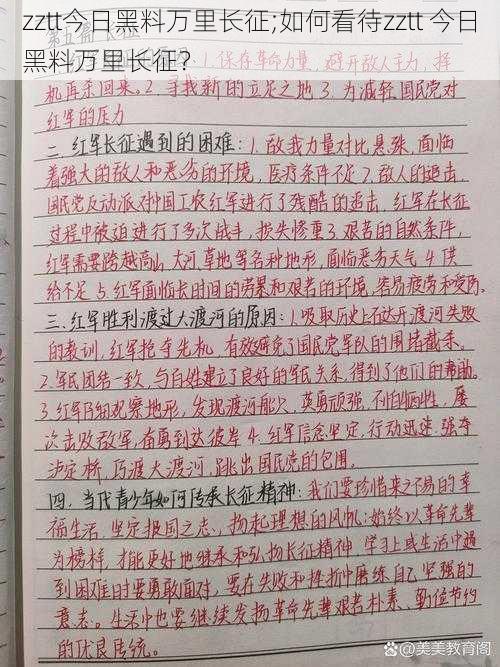 zztt今日黑料万里长征;如何看待zztt 今日
黑料万里长征?
1.保存革命力量,避开敌人主力,择
机再杀回来。2.寻找新的立足之地 3.为减轻国民党对
红军的压力
二.红军长征遇到的困难:1.敌我力量对比悬殊,面临
着强大的敌人和恶劣的环境,医疗条件不足 2.敌人的追击,
国民党反动派对中国工农红军进行了残酷的追击,红军在长征
过程中被迫进行了多次战斗,损失惨重 3.艰苦的自然条件,
红军需要跨越高山,大河,草地等各种地形,面临恶劣天气 4.供
给不足 5.红军面临长时间的劳累和艰苦的环境,容易疲劳和受伤。
三.红军胜利渡过大渡河的原因:1.吸取历史石达开渡河失败
的教训,红军抢夺先机,有效避免了国民党军队的围堵截杀。
2.军民团结一致,与百姓建立了良好的军民关系,得到了他们的帮助。
3.红军仔细观察地形,发现渡河船只,英勇顽强,不怕牺牲,屡
次击败敌军,奋勇到达彼岸 4.红军信念坚定,行动迅速,强夺
泸定桥,巧渡大渡河,跳出国民党的包围。
四.当代青少年如何传承长征精神:我们要珍惜来之不易的幸
福生活,坚定报国之志,扬起理想的风帆;始终以革命先辈
为榜样,才能更好地继承和弘扬长征精神,学习上或生活中遇
到困难时要勇敢面对,要在失败和挫折中磨练自己坚强的
意志。生活中也要继续发扬革命先辈艰苦朴素、勤俭节约
的优良传统。
@美美教育阁